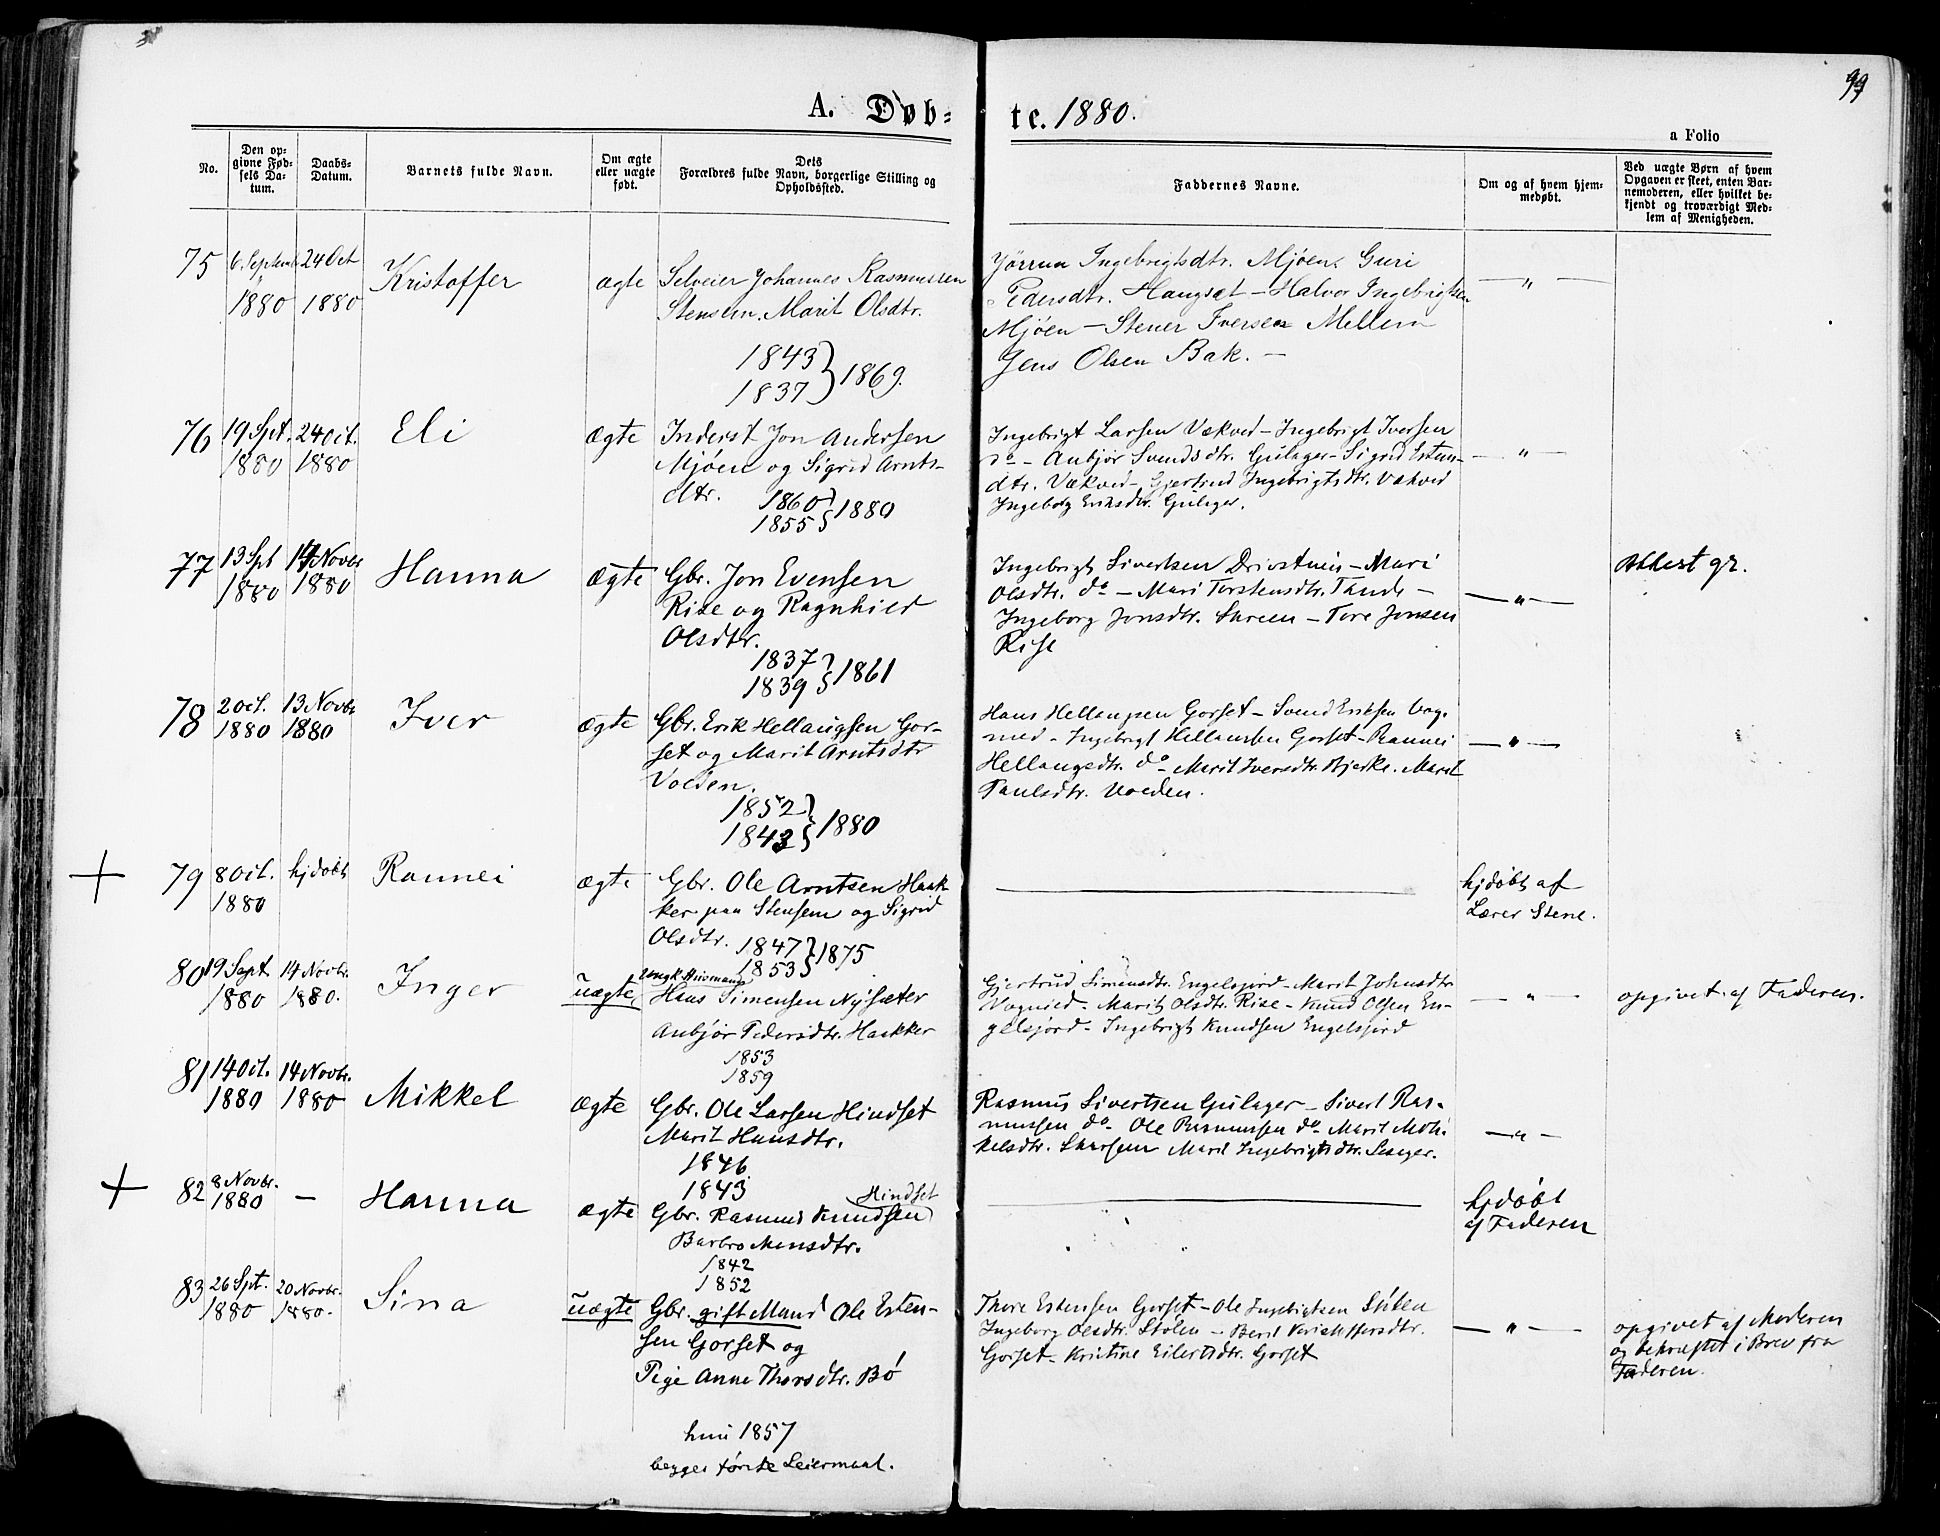 99
A. Døb-
te. 1880.
a Folio
No.
Den op-
givne Fød-
sels Da-
tum.
Daabs-
Datum.
Barnets fulde Navn.
Om ægte
eller uægte
født.
Dets
Forældres fulde Navn, borgerlige Stilling og
Opholdssted.
Faddernes Navne.
Om og af hvem hjem-
medøbt.
Ved uægte Børn af hvem
Opgaven er skeet, enten Bar-
nemoderen, eller hvilket be-
kjendt og troværdigt Med-
lem af Menigheden.
75
6. Septemb
1880
24 Oct
1880
Kristoffer
ægte
Selveier Johannes Rasmussen
Stensem. Marit Olsdtr.
1843
1837 } 1869.
Jörrun Ingebrigtsdtr. Mjøen. Guri
Pedersdtr. Haugset - Halvor Ingebrigtsen
Mjøen - Stener Iversen Mellem
Jens Olsen Bak. -
- " -
76
19 Spt.
1880
24 Oct.
1880
Eli
ægte
Inderst Jon Andersen
Mjøen og Sigrid Arnts-
dtr.
1860
1855 } 1880
Ingebrigt Larsen Vækved - Ingebrigt Iversen
do - Anbjør Svendsdtr. Gulager - Sigrid Esten-
dtr. Vækved - Gjertrud Ingebrigtsdtr. Vækved
Ingeborg Eriksdtr. Gulager.
- " -
77
13 Spt
1880
14 Novbr
1880
Hanna
ægte
Gbr. Jon Evensen
Rise og Ragnhild
Olsdtr.
1837
1839 } 1861
Ingebrigt Sivertsen Drivstuen - Mari
Olsdtr. do - Mari Torstensdtr. Tande -
Ingeborg Jonsdtr. - Tore Jonsen
Rise
- " -
Attest gr.
78
2 Oct.
1880
13 Novbr
1880
Iver
ægte
Gbr. Erik Hellaugsen Gor-
set og Marit Arntsdtr
Volden.
1852
1843 } 1880
Hans Hellaugsen Gorset - Svend Eriksen Vog-
nied - Ingebrigt Hellaugsen Gorset - Rannei
Hellaugsdtr. do - Marit Iversdtr. Bjerke. Marit
Paulsdtr. Volden.
- " -
79
8 Oct.
1880
hjdøbt
Rannei
ægte
Gbr. Ole Arntsen Haak-
ker paa Stensem og Sigrid
Olsdtr.
1847
1853 } 1875
hjdøbt af
Lærer Stene.
80
19 Sept
1880
14 Novbr.
1880.
Inger
uægte
Ungk. Husmand
Hans Simensen Nysæter
Anbjør Pedersdtr. Haakker
1853
1859
Gjertrud Simensdtr. Engelsjord - Marit Johnsdtr
Vognied - Marit Olsdtr. Rise - Knud Olsen En-
gelsjord - Ingebrigt Knudsen Engelsjord
- " -
opgivet af Faderen.
81
14 Oct.
1880
14 Novbr.
1880
Mikkel
ægte
Gbr. Ole Larsen Hindset
Marit Hansdtr.
1846
1843
Rasmus Sivertsen Gulager - Sivert Ras-
mussen do - Ole Rasmussen do Marit Mik-
kelsdtr. Skarsem Marit Ingebrigtsdtr.
- " -
82
8 Novbr.
1880
-
Hanna
ægte
Gbr. Rasmus Knudsen Hindset
Barbro Monsdtr.
1842
1852
hjdøbt
af Faderen
83
26 Spt.
1880
20 Novbr.
1880.
Sina
uægte
Gbr. gift Mand Ole Esten-
sen Gorset og
Pige Anne Thorsdtr. Bø
hun 1857
begges første Leiermaal.
Thore Estensen Gorset - Ole Ingebrigtsen Stölen
Ingeborg Olsdtr. Stölen - Berit Kristoffersdtr.
Gorset - Kristine Eilertsdtr. Gorset
- " -
opgivet af Moderen
og bekræftet i Brev fra
Faderen.